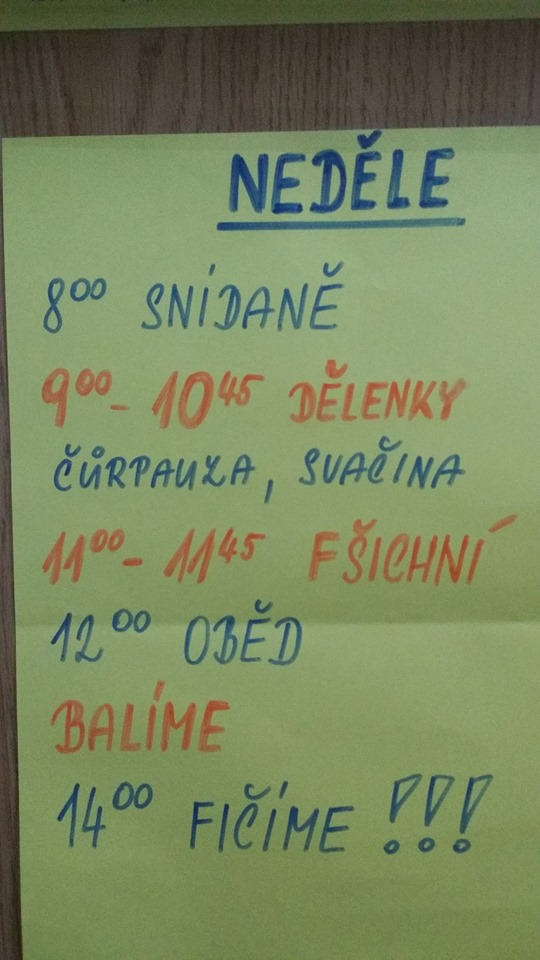 NEDĚLE
8⁰⁰ SNÍDANĚ
9⁰⁰- 10⁴⁵ DĚLENKY
ČŮRPAUZA, SVAČINA
11⁰⁰- 11⁴⁵ FŠICHNÍ
12⁰⁰ OBĚD
BALÍME
14⁰⁰ FIČÍME !!!